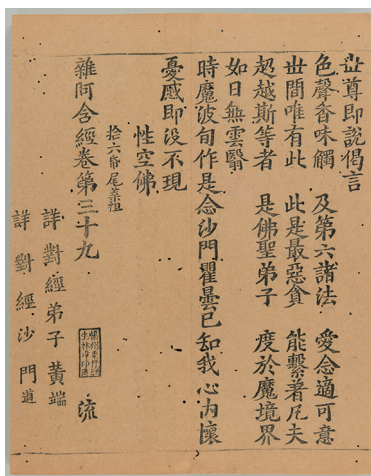 世尊即說偈言
色聲香味觸 及第六諸法 愛念適可意
世間唯有此 此是最惡貪 能繫著凡夫
超越斯等者 是佛聖弟子 度於魔境界
如日無雲翳
時魔波旬作是念沙門瞿曇已知我心內懷
憂慼即沒不現
性空佛
拾六帋尾葉徂
雜阿含經卷第三十九 流
詳對經弟子黃端
詳對經沙門道